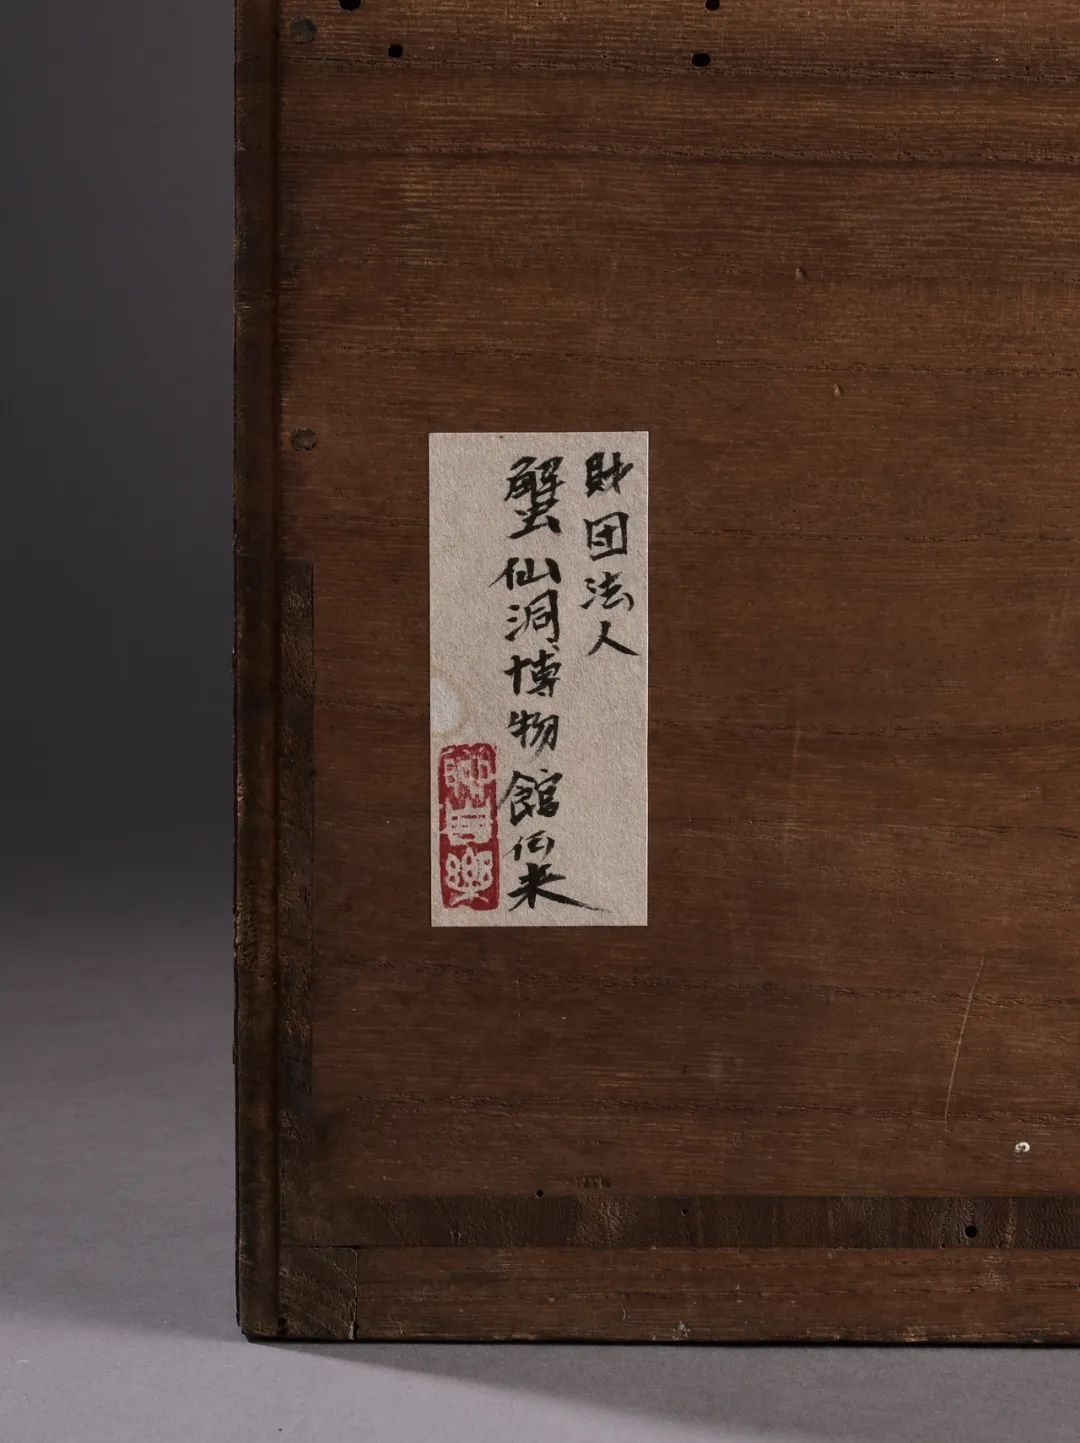 財団法人
蟹仙洞博物館伝来